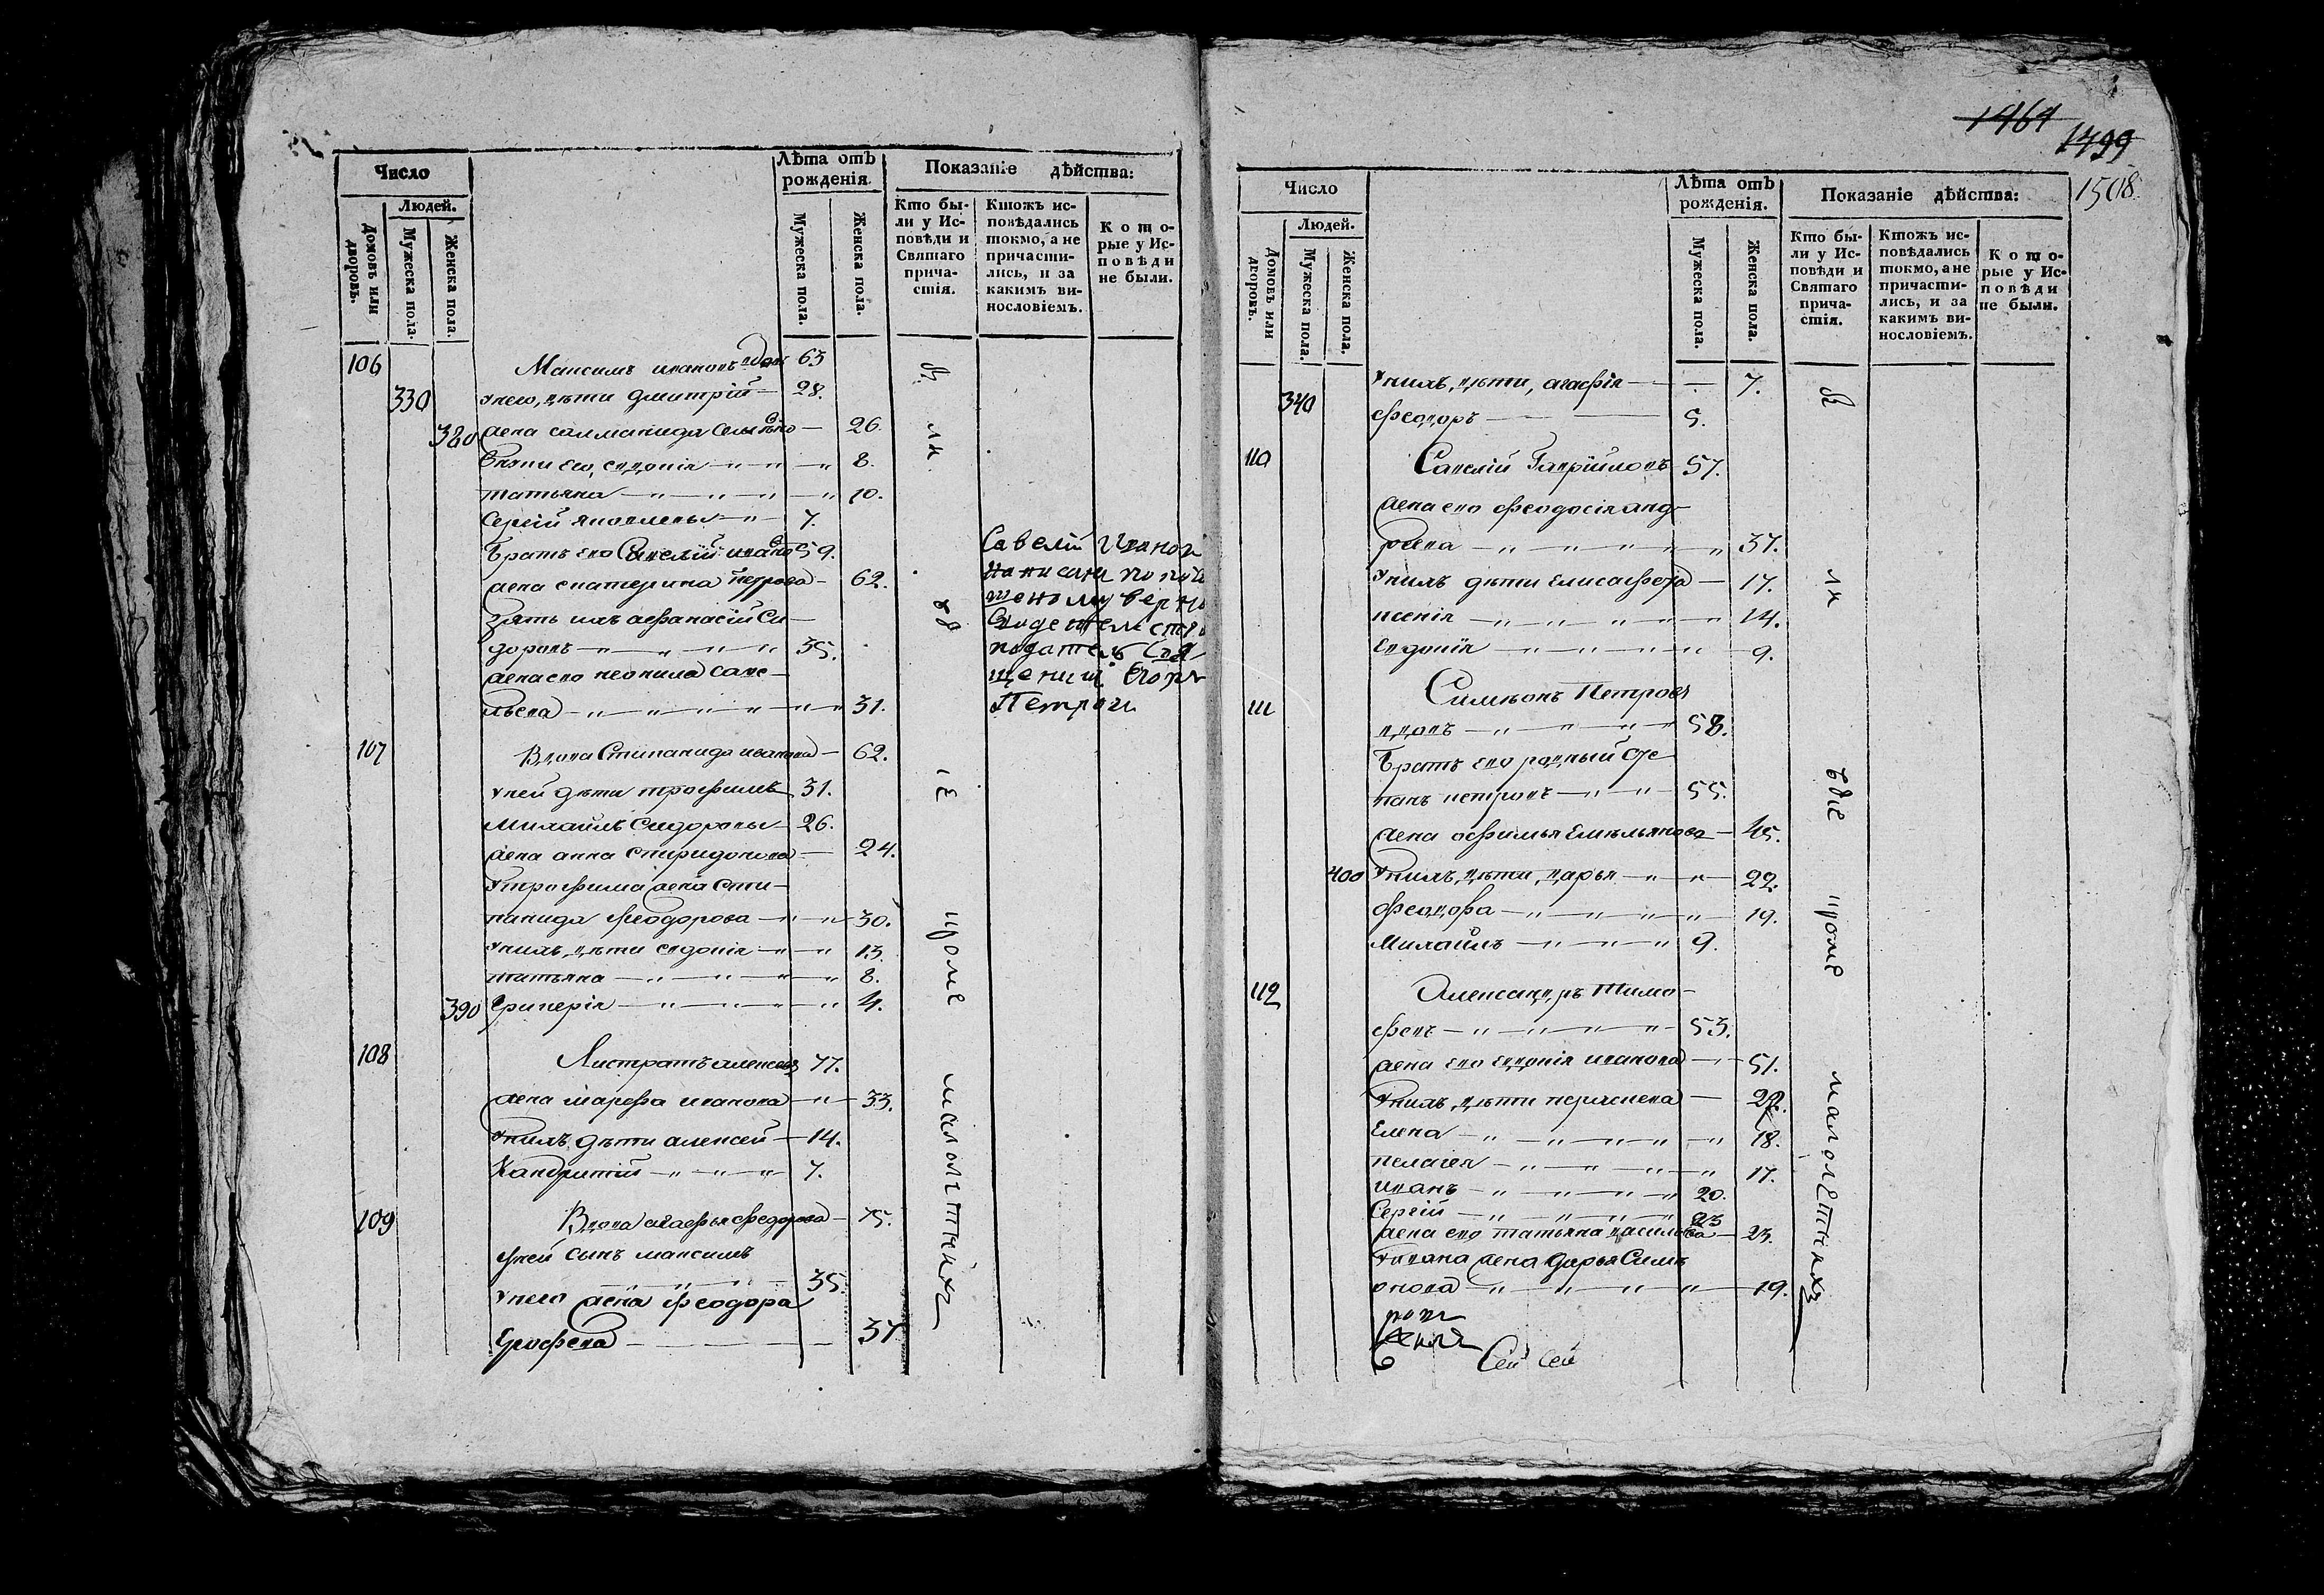 Число
Людей.
Домовъ или дворовъ.
Мужеска пола.
Женска пола.
Лѣта отъ рожденія.
Мужеска пола.
Женска пола.
Показаніе дѣйства:
Кто были у Исповѣди и Святаго причастія.
Ктожъ исповѣдались токмо, а не причастились, и за какимъ винословіемъ.
Которые у Исповѣди не были.
106 Максимъ ивановъ вдовъ 63
330 унего, дѣти дмитрій 28.
380 жена саломанида 26.
его, евдокія 8.
татьяна 10.
Сергій яковлевы 7.
Братъ его Савелій ивано 59.
жена екатерина петрова 62.
зять ихъ афанасій Си-
доровъ 35.
жена его неонила Саве-
льева 31.
Савелій Иванов
Написаны по
Петров
107 Вдова Степанида иванова 62.
уней дѣти трофимъ 31.
Михаилъ Сидоровы 26.
жена анна спиридонова 24.
утрофима жена Сте-
панида феодорова 30.
унихъ, дѣти евдокія 13.
татьяна 8.
390 4.
108 Листратъ алексеевъ 77.
жена марфа иванова 33.
унихъ, дѣти алексей 14.
Кандратій 7.
109 Вдова агафья федорова 75.
уней сынъ максимъ
35.
унего жена феодора
Ерофева 37
Были всѣ кроме малолѣтныхъ
1464
1499
1508.
Число
Людей.
Домовъ или дворовъ.
Мужеска пола.
Женска пола.
Лѣта отъ рожденія.
Мужеска пола.
Женска пола.
Показаніе дѣйства:
Кто были у Исповѣди и Святаго причастія.
Ктожъ исповѣдались токмо, а не причастились, и за какимъ винословіемъ.
Которые у Исповѣди не были.
унихъ, дѣти, агафія 7.
340 федоръ 5.
110 Савелій Гаврійловъ 57.
жена его феодосія анд-
рѣева 37.
унихъ дѣти елисафета 17.
ксенія 14.
Евдокія 9.
111 Симѣонъ Петровъ
вдовъ 58.
Братъ его родный Сте
панъ петровъ 55.
жена офимья Емельянова 45.
400 унихъ, дѣти, дарья 22.
феодора 19.
Михайлъ 9.
112 Александръ Тимо-
феевъ 53.
жена его евдокія иванова 51.
унихъ, дѣти 22.
Елена 18.
пелагея 17.
иванъ 20.
Сергій 23
жена его татьяна василева 23.
уивана жена дарья Симе
онова 19.
Сей Сей
Были всѣ кроме малолѣтныхъ